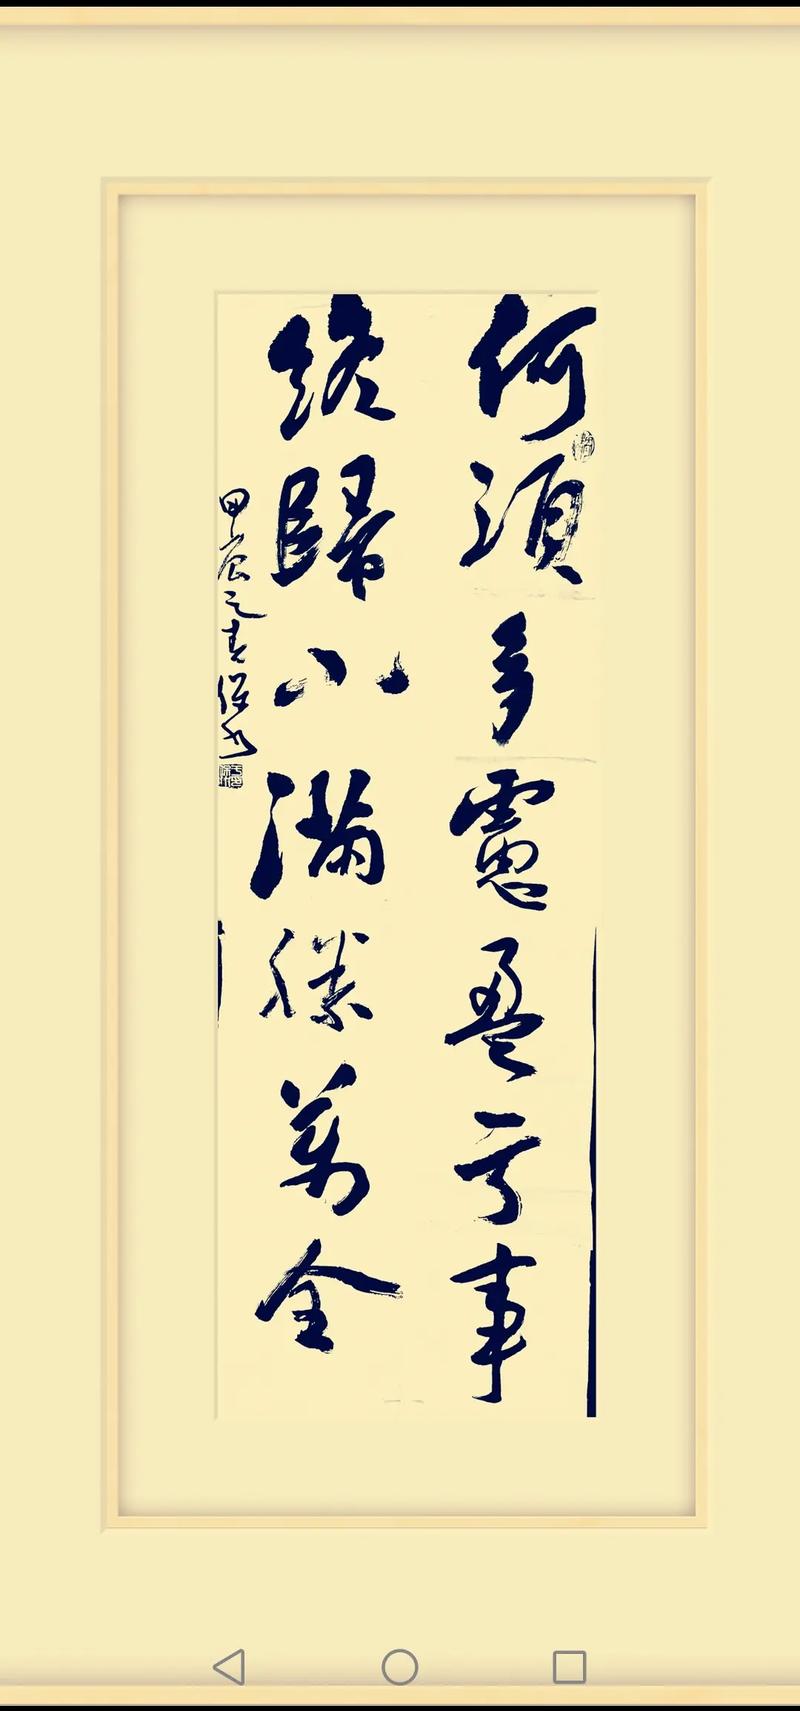 何須多慮盈虧事
終歸小滿勝萬全
甲辰之春